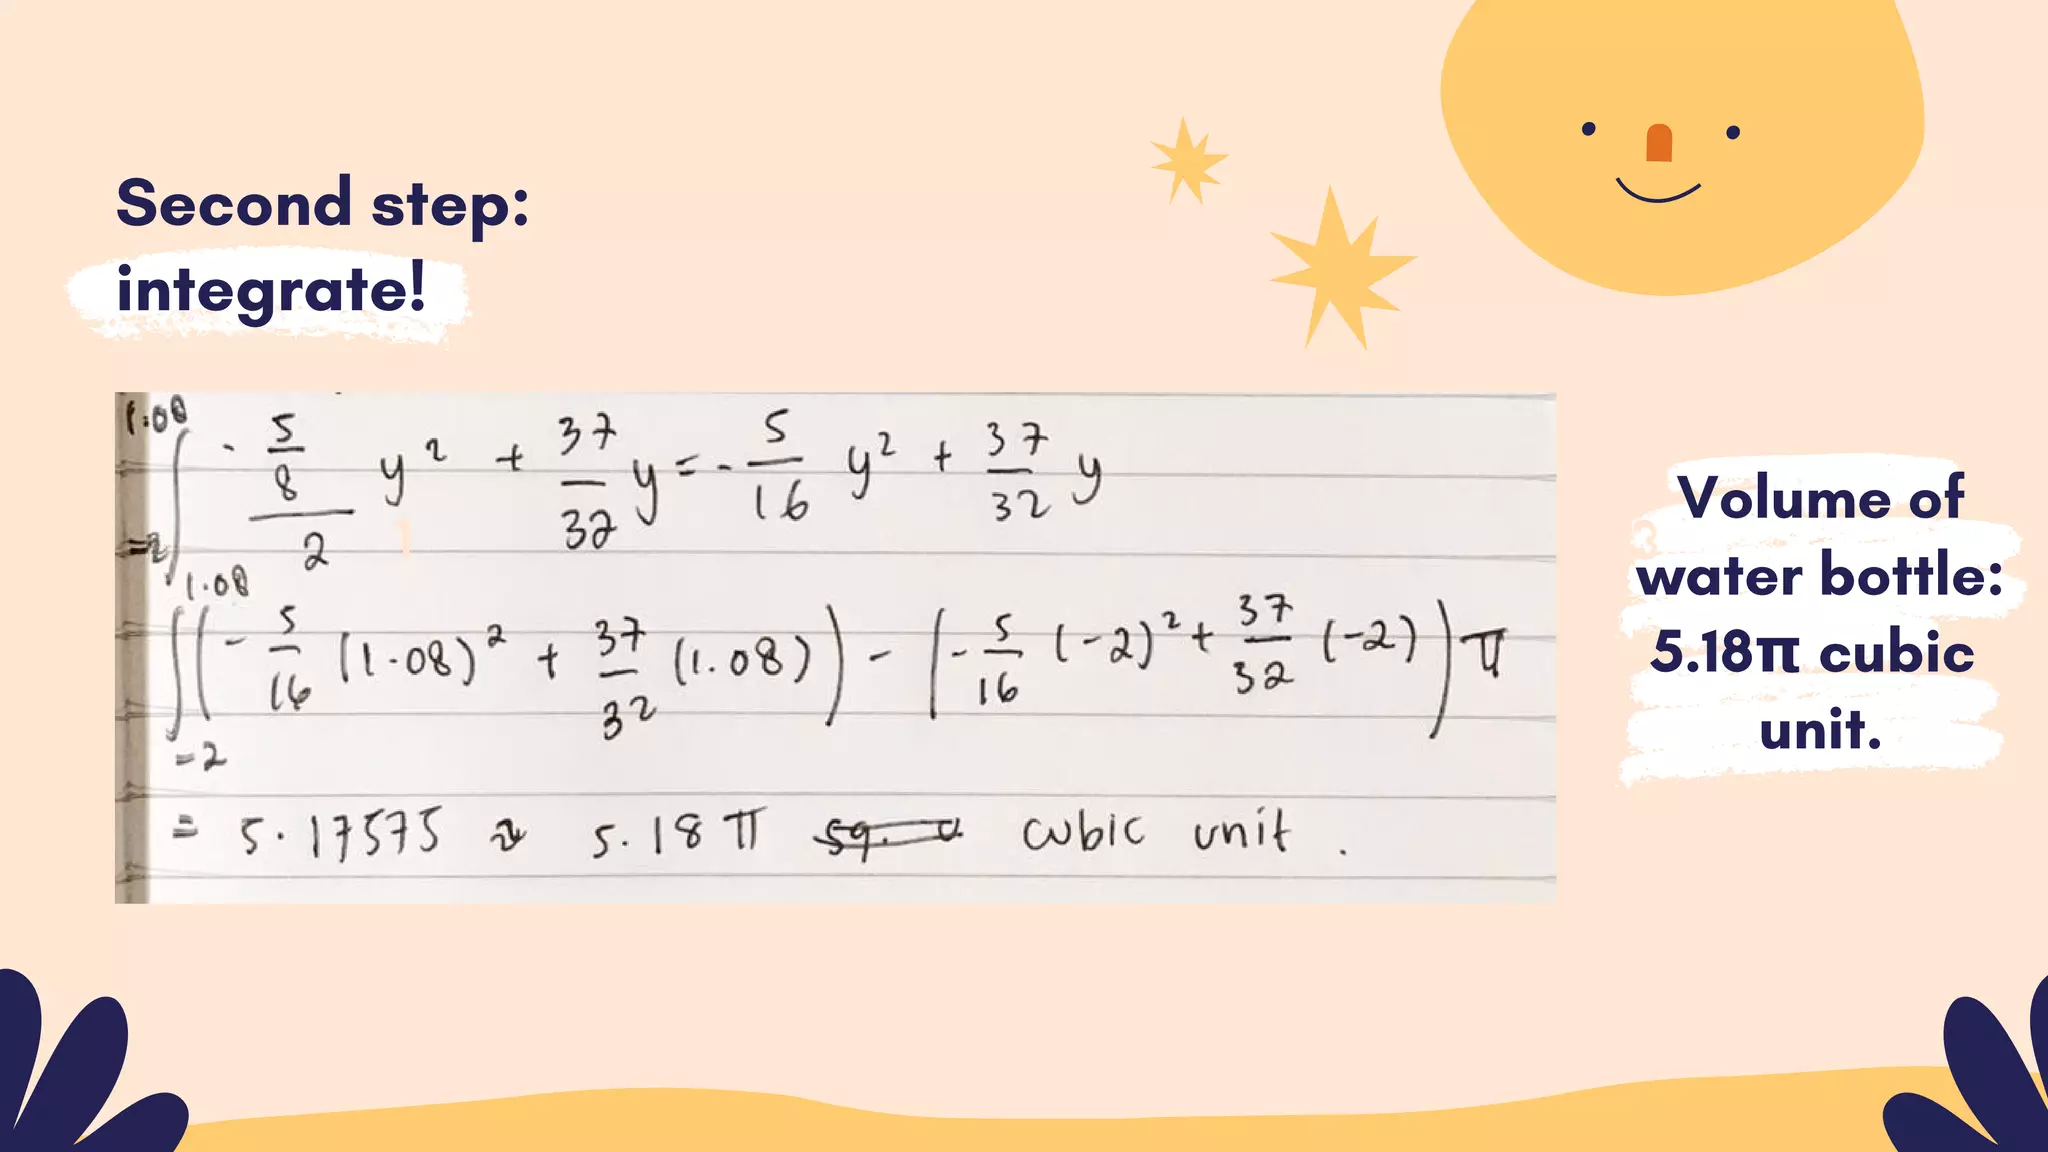 Second step:
integrate!
∫_{-2}^{1.08} -(5/8)/2 y² + 37/32 y = -5/16 y² + 37/32 y
∫_{-2}^{1.08} (-5/16 (1.08)² + 37/32 (1.08)) - (-5/16 (-2)² + 37/32 (-2)) π
= 5.17575 ≈ 5.18 π cubic unit.
Volume of
water bottle:
5.18π cubic
unit.